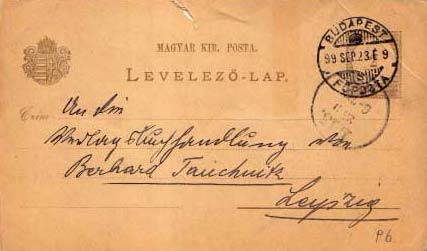 MAGYAR KIR. POSTA.
LEVELEZŐ-LAP.
BUDAPEST
99 SEP. 23. E 9
FŐPOSTA
Czim:
An die
Verlagsbuchhandlung von
Berhard Tauchnitz
Leipzig
P6